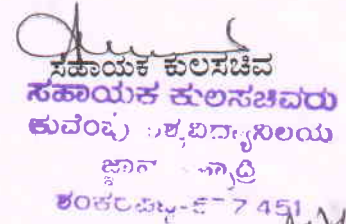 ಸಹಾಯಕ ಕುಲಸಚಿವ
ಸಹಾಯಕ ಕುಲಸಚಿವರು
ಕುವೆಂಪು ವಿಶ್ವವಿದ್ಯಾನಿಲಯ
ಶಂಕರಘಟ್ಟ-577 451